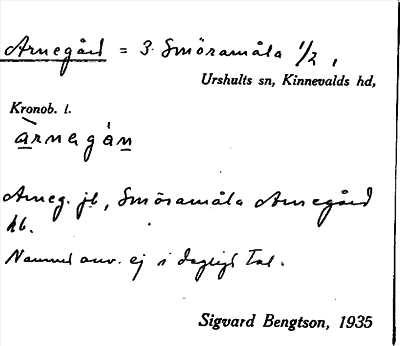 Arnegård = 3. Smöramåla 1/2,
Urshults sn, Kinnevalds hd,
Kronob. l.
àrnegån
Arneg. jb, Smöramåla Arnegård
hb.
Namnet anv. ej i dagligt tal.
Sigvard Bengtson, 1935